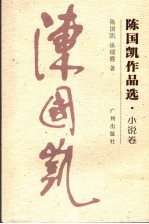 陈国凯作品选·小说卷
陈国凯 纵瑞霞 著
广州出版社
陳國凯